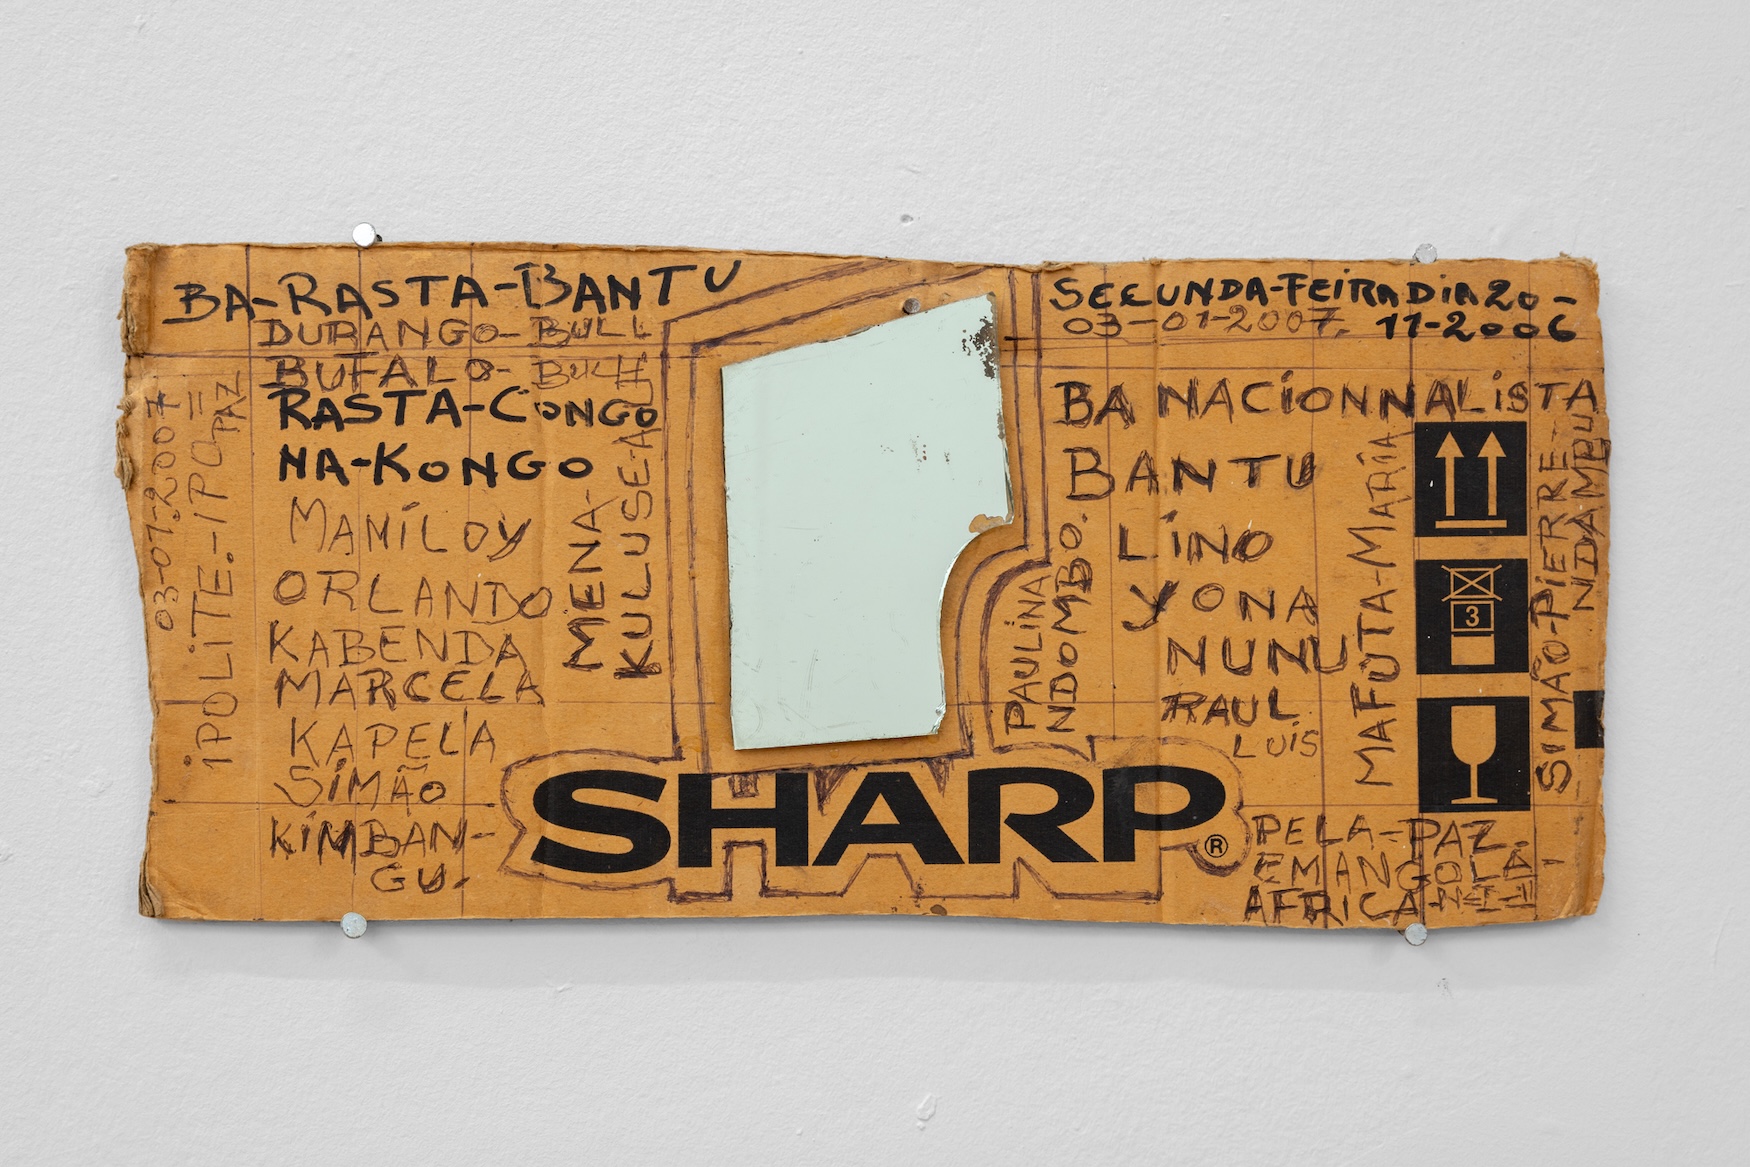 BA-RASTA-BANTU
DURANGO-BULL
BUFALO-
RASTA-CONGO
NA-KONGO
MANiLOY
ORLANDO
KABENDA
MARCELA
KAPELA
SiMÃO
KiMBAN-
GU.
03-01-2007
iPOLiTE.-
PAZ
MENA-
KULUSE-A
SHARP®
PAULiNA
NDOMBO.
SEGUNDA-FEiRA DiA 20-
03-01-2007. 11-2006
BA NACiONNALiSTA
BANTU
LiNO
YONA
NUNU
RAUL
LUiS
MAFUTA-MARiA
3
SiMÃO-PiERRE-
NDAMBU
PELA-PAZ.
EM ANGOLA
AFRiCA-